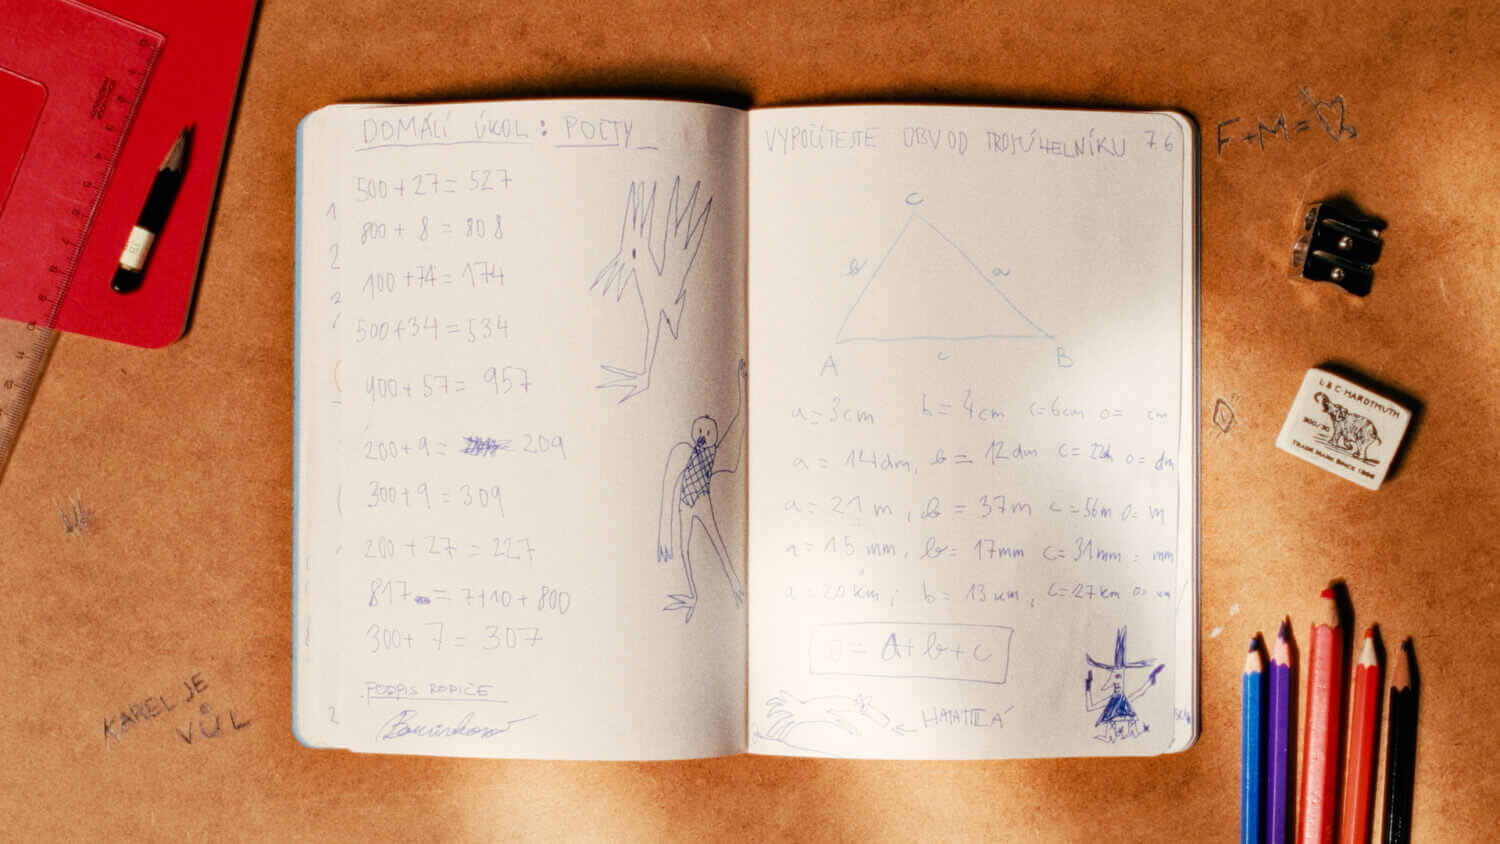 DOMÁCÍ ÚKOL: POČTY
500+27=527
800+8=808
100+74=174
500+34=534
900+57=957
200+9=209
300+9=309
200+27=227
817=7+10+800
300+7=307
PODPIS RODIČE
VYPOČÍTEJTE OBVOD TROJÚHELNÍKU 76
C
b a
A c B
a=3cm b=4cm c=6cm o= cm
a=14dm, b=12dm c=22d o= dm
a=21m, b=37m c=56m o= m
a=15mm, b=17mm c=31mm = mm
a=20km; b=13km, c=27km o= km
o=A+b+c
F+M=
L.&C.HARDTMUTH
300/30
TRADE MARK SINCE
KAREL JE
VŮL